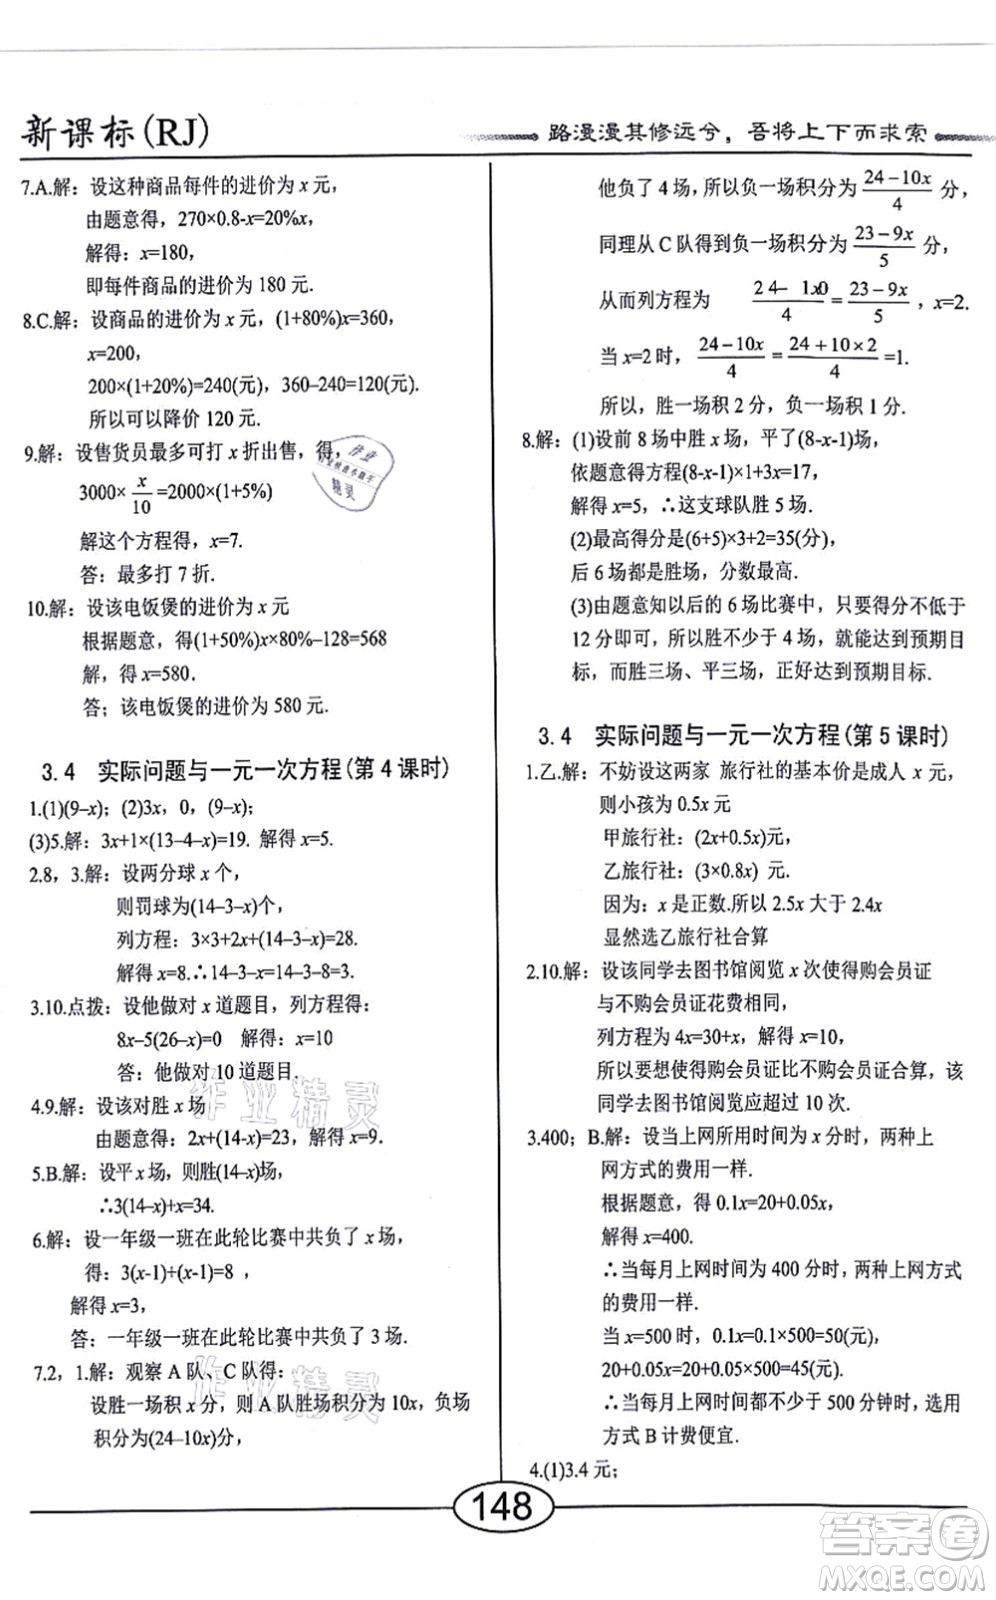 新课标(RJ)
路漫漫其修远兮，吾将上下而求索
7.A.解：设这种商品每件的进价为 x 元，
由题意得，270×0.8-x=20%x，
解得：x=180，
即每件商品的进价为 180 元.
8.C.解：设商品的进价为 x 元，(1+80%)x=360，
x=200，
200×(1+20%)=240(元)，360–240=120(元).
所以可以降价 120 元.
9.解：设售货员最多可打 x 折出售，得，
3000× x/10 =2000×(1+5%)
解这个方程得，x=7.
答：最多打 7 折.
10.解：设该电饭煲的进价为 x 元
根据题意，得(1+50%)x×80%–128=568
解，得 x=580.
答；该电饭煲的进价为 580 元.
3.4 实际问题与一元一次方程(第 4 课时)
1.(1)(9–x)；(2)3x，0，(9–x)；
(3)5.解：3x+1×(13–4–x)=19. 解得 x=5.
2.8，3.解：设两分球 x 个，
则罚球为(14–3–x)个，
列方程：3×3+2x+(14–3–x)=28.
解得 x=8.∴14–3–x=14–3–8=3.
3.10.点拨：设他做对 x 道题目，列方程得：
8x–5(26–x)=0 解得：x=10
答：他做对 10 道题目.
4.9.解：设该对胜 x 场
由题意得：2x+(14–x)=23，解得 x=9.
5.B.解：设平 x 场，则胜(14–x)场，
∴3(14–x)+x=34.
6.解：设一年级一班在此轮比赛中共负了 x 场，
得：3(x-1)+(x-1)=8 ，
解得 x=3，
答：一年级一班在此轮比赛中共负了 3 场.
7.2，1.解：观察 A 队、C 队得：
设胜一场积 x 分，则 A 队胜场积分为 10x，负场
积分为(24–10x)分，
他负了 4 场，所以负一场积分为 (24－10x)/4 分，
同理从 C 队得到负一场积分为 (23－9x)/5 分，
从而列方程为 (24– 1x0)/4 = (23－9x)/5 ，x=2.
当 x=2 时，(24－10x)/4 = (24＋10×2)/4 =1.
所以，胜一场积 2 分，负一场积 1 分.
8.解：(1)设前 8 场中胜 x 场，平了(8-x-1)场，
依题意得方程(8-x-1)×1+3x=17，
解得 x=5，∴这支球队胜 5 场.
(2)最高得分是(6+5)×3+2=35(分)，
后 6 场都是胜场，分数最高.
(3)由题意知以后的 6 场比赛中，只要得分不低于
12 分即可，所以胜不少于 4 场，就能达到预期目
标，而胜三场、平三场，正好达到预期目标.
3.4 实际问题与一元一次方程(第 5 课时)
1.乙.解：不妨设这两家 旅行社的基本价是成人 x 元，
则小孩为 0.5x 元
甲旅行社：(2x+0.5x)元，
乙旅行社：(3×0.8x) 元.
因为：x 是正数.所以 2.5x 大于 2.4x
显然选乙旅行社合算
2.10.解：设该同学去图书馆阅览 x 次使得购会员证
与不购会员证花费相同，
列方程为 4x=30+x，解得 x=10，
所以要使得购会员证比不购会员证合算，
该同学去图书馆阅览应超过 10 次.
3.400；B.解：设当上网所用时间为 x 分时，两种上
网方式的费用一样.
根据题意，得 0.1x=20+0.05x，
解得 x=400.
∴当每月上网时间为 400 分时，两种上网方式
的费用一样.
当 x=500 时，0.1x=0.1×500=50(元)，
20+0.05x=20+0.05×500=45(元).
∴当每月上网的时间不少于 500 分钟时，选用
方式 B 计费便宜.
4.(1)3.4 元；
148
作业精灵
作业精灵
答案卷
MXQE.COM